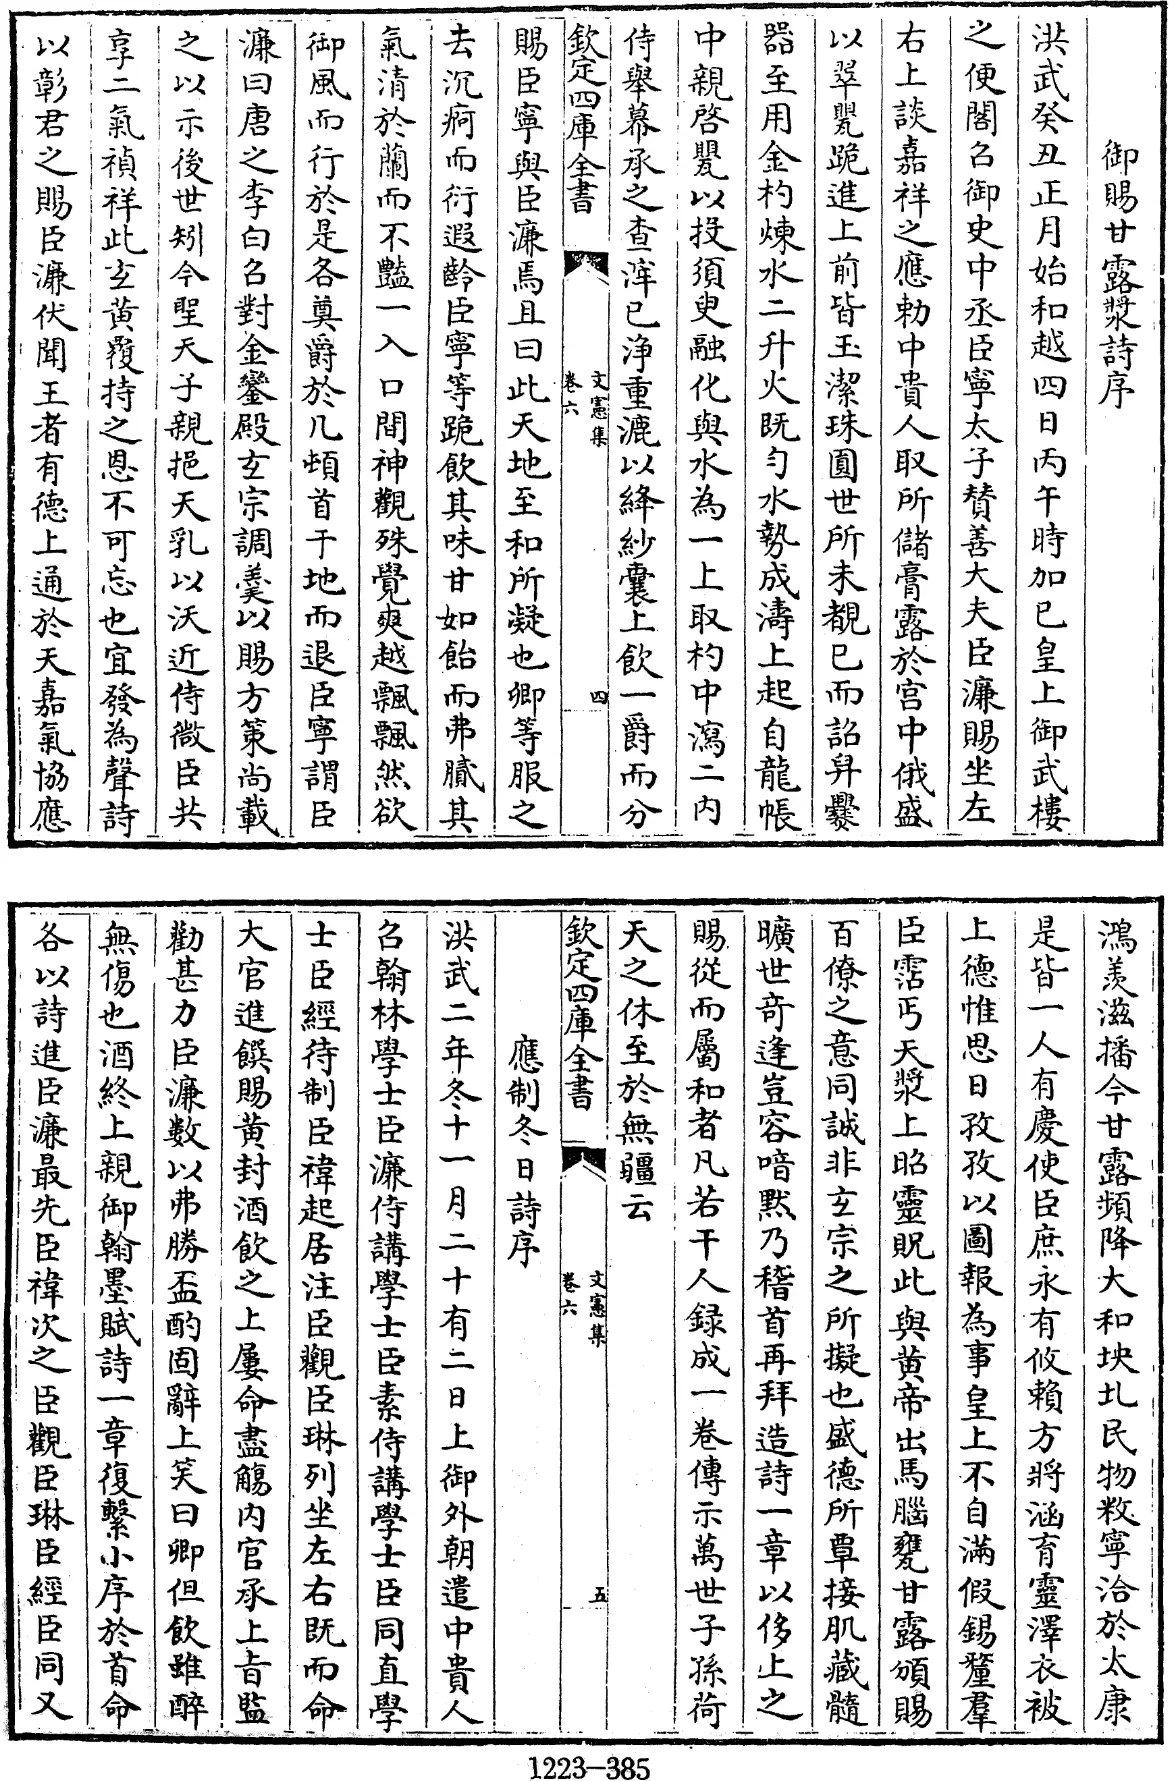 御賜甘露漿詩序
洪武癸丑正月始和越四日丙午時加巳皇上御武樓
之便閣召御史中丞臣寧太子賛善大夫臣濂賜坐左
右上談嘉祥之應勅中貴人取所儲膏露於宫中俄盛
以翠甖跪進上前皆玉潔珠圓世所未覩已而詔舁爨
器至用金杓煉水二升火既勻水勢成濤上起自龍帳
中親啓甖以投須臾融化與水為一上取杓中瀉二内
侍舉幕承之查滓已浄重漉以絳紗囊上飲一爵而分
欽定四庫全書
文憲集
卷六
四
賜臣寧與臣濂焉且曰此天地至和所凝也卿等服之
去沉痾而衍遐齡臣寧等跪飲其味甘如飴而弗膩其
氣清於蘭而不豔一入口間神觀殊覺爽越飄飄然欲
御風而行於是各奠爵於几頓首于地而退臣寧謂臣
濂曰唐之李白召對金鑾殿玄宗調羮以賜方策尚載
之以示後世矧今聖天子親挹天乳以沃近侍微臣共
享二氣禎祥此玄黄覆持之恩不可忘也宜發為聲詩
以彰君之賜臣濂伏聞王者有德上通於天嘉氣協應
鴻羨滋播今甘露頻降大和坱圠民物敉寧洽於太康
是皆一人有慶使臣庶永有攸賴方將涵育靈澤衣被
上德惟思日孜孜以圖報為事皇上不自滿假錫釐羣
臣霑丐天漿上昭靈貺此與黄帝出馬腦甕甘露頒賜
百僚之意同誠非玄宗之所擬也盛德所覃接肌藏髓
曠世奇逢豈容喑黙乃稽首再拜造詩一章以侈上之
賜從而屬和者凡若干人録成一卷傳示萬世子孫荷
天之休至於無疆云
欽定四庫全書
文憲集
卷六
五
應制冬日詩序
洪武二年冬十一月二十有二日上御外朝遣中貴人
召翰林學士臣濂侍講學士臣素侍講學士臣同直學
士臣經待制臣褘起居注臣觀臣琳列坐左右既而命
大官進饌賜黄封酒飲之上屢命盡觴内官承上㫖監
勸甚力臣濂數以弗勝盃酌固辭上笑曰卿但飲雖醉
無傷也酒終上親御翰墨賦詩一章復繫小序於首命
各以詩進臣濂最先臣褘次之臣觀臣琳臣經臣同又
1223-385